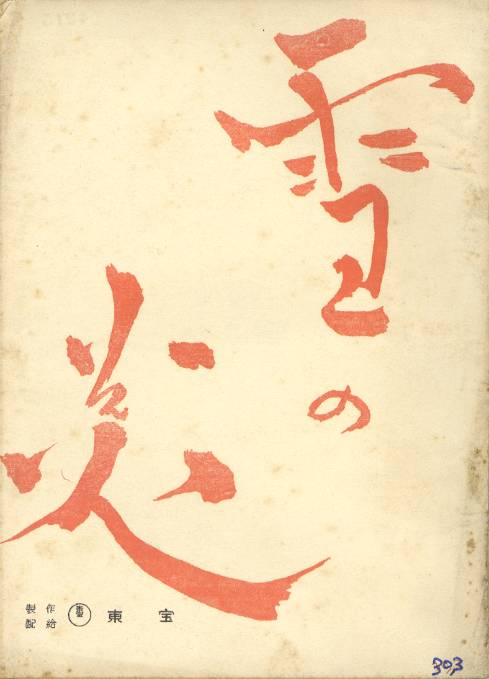 雪の
炎
製作
配給
東宝
303